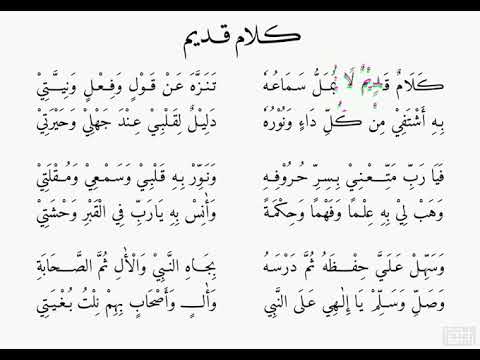 كلام قديم
كَلَامٌ قَدِيْمٌ لَا يُمَلُّ سَمَاعُهُ تَنَزَّهَ عَنْ قَوْلٍ وَفِعْلٍ وَنِيَّتِيْ
بِهِ أَشْتَفِيْ مِنْ كُلِّ دَاءٍ وَنُوْرُهُ دَلِيْلٌ لِقَلْبِيْ عِنْدَ جَهْلِيْ وَحَيْرَتِيْ
فَيَا رَبِّ مَتِّعْنِيْ بِسِرِّ حُرُوْفِهِ وَنَوِّرْ بِهِ قَلْبِيْ وَسَمْعِيْ وَمُقْلَتِيْ
وَهَبْ لِيْ بِهِ عِلْمًا وَفَهْمًا وَحِكْمَةً وَأٰنِسْ بِهِ يَارَبِّ فِي الْقَبْرِ وَحْشَتِيْ
وَسَهِّلْ عَلَيَّ حِفْظَهُ ثُمَّ دَرْسَهُ بِجَاهِ النَّبِيْ وَالْأٰلِ ثُمَّ الصَّحَابَةِ
وَصَلِّ وَسَلِّمْ يَا إِلٰهِيْ عَلَى النَّبِيْ وَأٰلٍ وَأَصْحَابٍ بِهِمْ نِلْتُ بُغْيَتِيْ